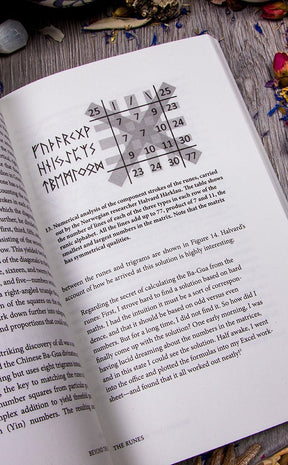 ᚠᚢᚦᚨᚱᚲᚷᚹ
ᚺᚾᛁᛃᛇᛈᛉᛊ
ᛏᛒᛖᛗᛚᛜᛞᛟ
25 | / \ 25
7 7 9 23
7 7 10 24
9 10 11 30
23 24 30 77
13. Numerical analysis of the component strokes of the runes, carried
out by the Norwegian researcher Halvard Hårklau. The table shows
the number of lines of each of the three types in each row of the
runic alphabet. All the lines add up to 77, product of 7 and 11, the
smallest and largest numbers in the matrix. Note that the matrix
has symmetrical qualities.
between the runes and trigrams are shown in Figure 14. Halvard's
account of how he arrived at this solution is highly interesting.
Regarding the secret of calculating the Ba-Gua from the
runes: First, I strove hard to find a solution based on hard
maths. I had the intuition it must be a sort of correspon-
dence, and that it should be based on odd versus even
numbers. But for a long time, I did not find it. So how did I
finally come up with the solution? One early morning, I was
having lucid dreaming about the numbers in the matrices,
and in this state I could see the solution. Half awake, I went
into the office and plotted the formulas into my Excel work-
sheet—and found that it all worked out neatly!
THE RUNES
of diagonal
sixteen, and
mark down further into
proportions that could
discovery of all was
the Chinese Ba-Gua divina-
but uses eight trigrams,
the key to matching the runes
number squares from
addition to yield
(Yin) numbers. The resulting